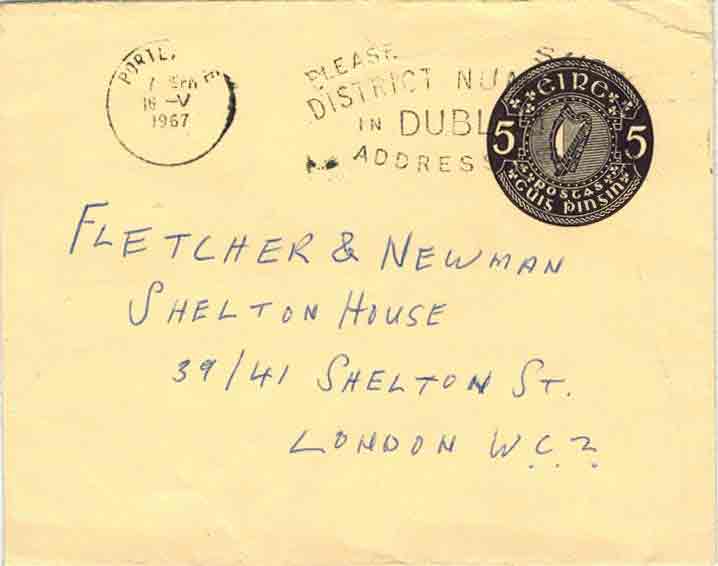 PORTL
16 -V
1967
PLEASE
DISTRICT NUM
IN DUBL
ADDRESS
ÉIRE
5 5
POSTAS
CÚIG PINGIN
FLETCHER & NEWMAN
SHELTON HOUSE
39/41 SHELTON ST.
LONDON W.C.2.